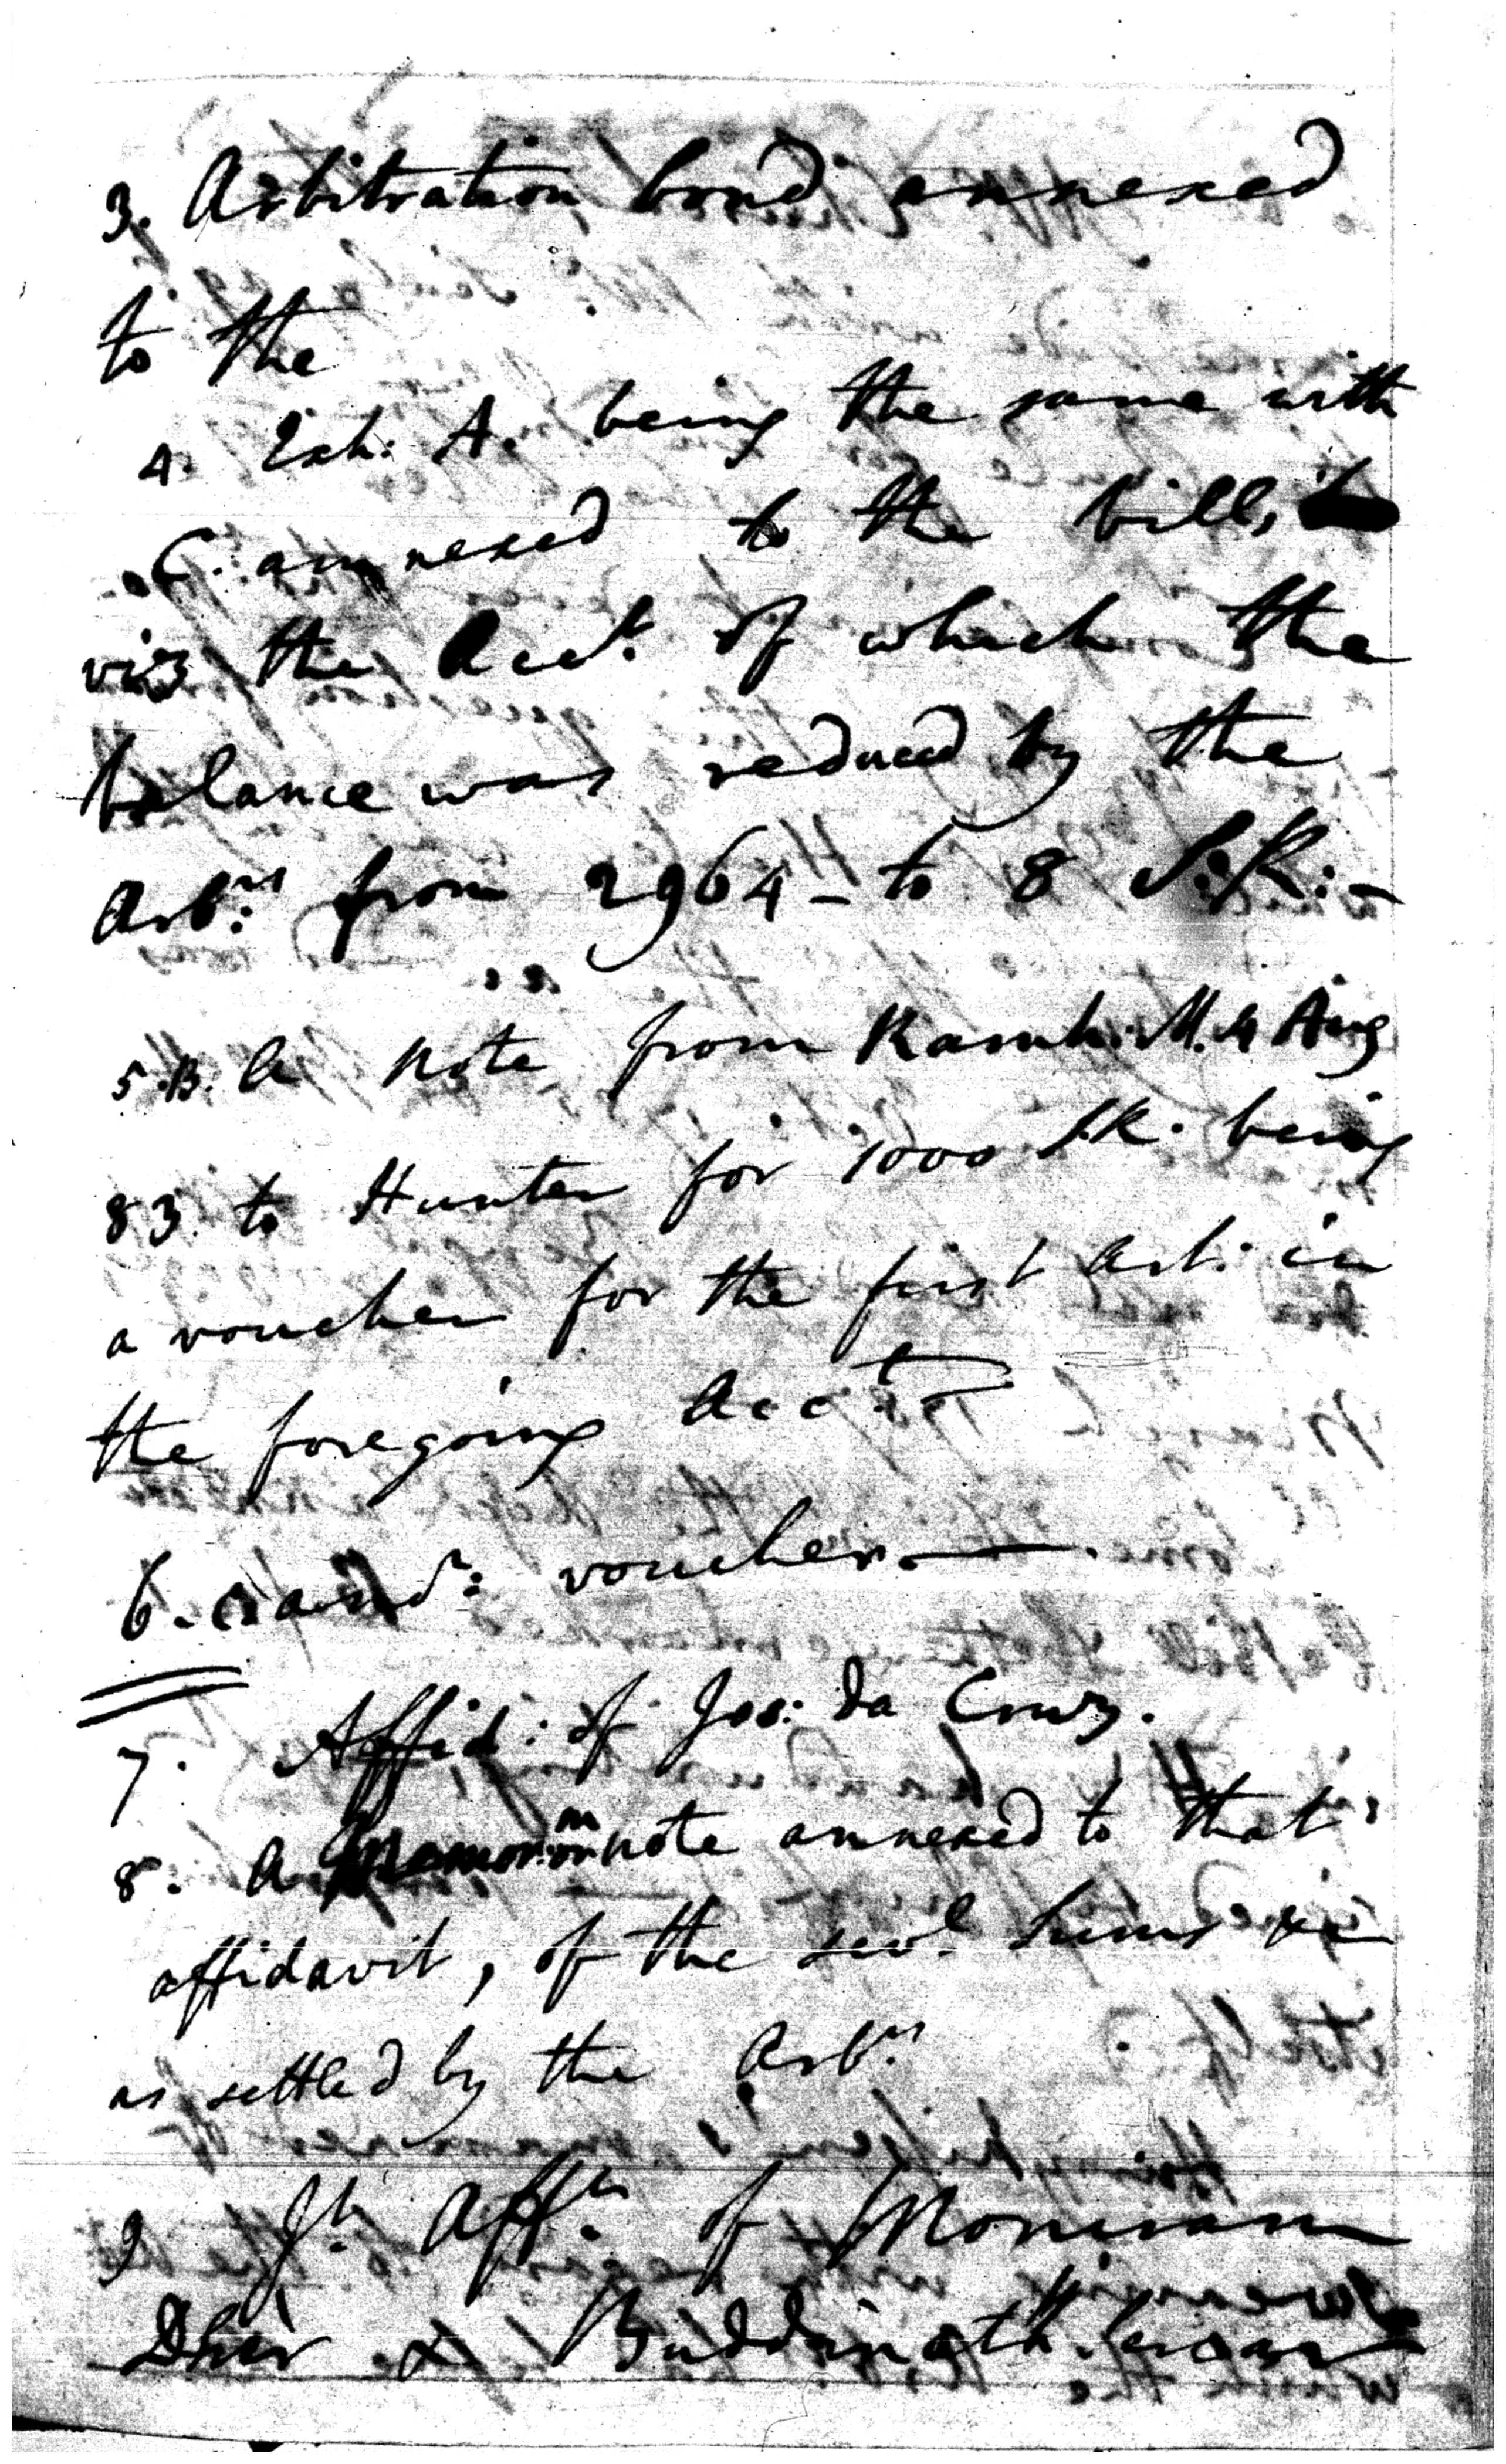 3. Arbitration bond annexed
to the
4. Exh: A. being the same with
C. annexed to the bill,
viz the Acct. of which the
balance was reduced by the
Arbrs. from 2964 – to 8 S.R: –
5. B. A note from Ramk: M. 4 Aug
83. to Hunter for 1000 S.R. being
a voucher for the first Art: in
the foregoing Acct.
6. C and: voucher. —
7. Affid: of Jos: da Cruz.
8. A note annexed to that
affidavit, of the sevl. sums
as settled by the Arbrs.
9 Jt. Affts. of Moniram
Dher & Buddinath